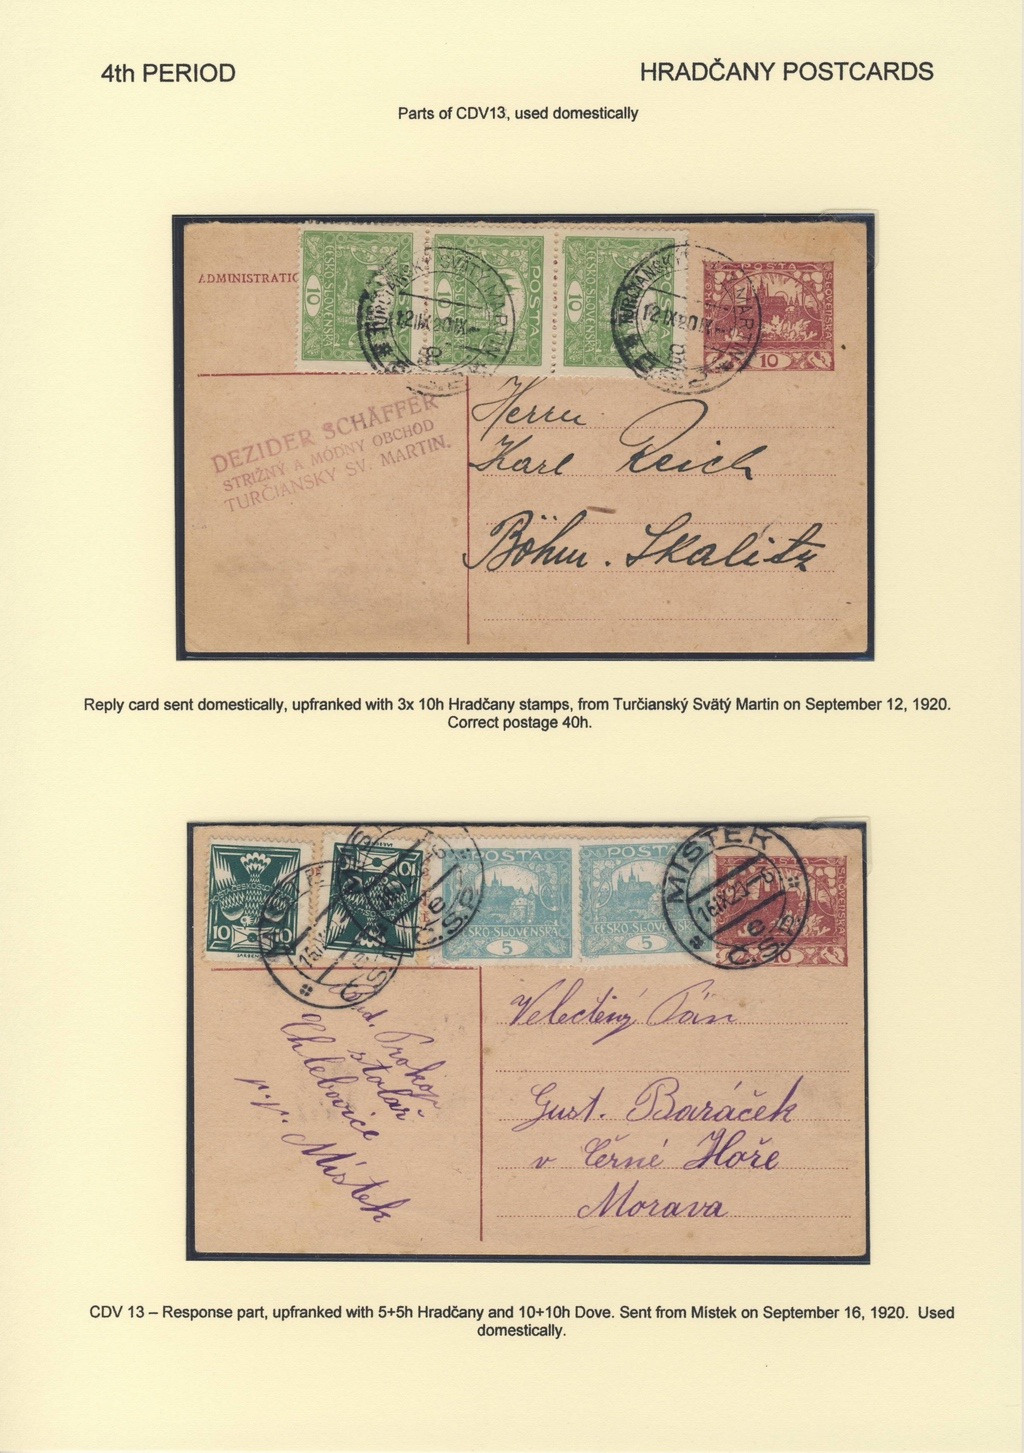 4th PERIOD
HRADČANY POSTCARDS
Parts of CDV13, used domestically
ADMINISTRATIO
10
10
10
POSTA
ČESKO-SLOVENSKÁ
POSTA
SLOVENSKÁ
10
TURČIANSKÝ SVÄTÝ MARTIN
12 IX 20 IX
TURČIANSKÝ
MARTIN
12 IX 20 IX
DEZIDER SCHÄFFER
STRIŽNY A MÓDNY OBCHOD
TURČIANSKY SV. MARTIN.
Herrn
Karl Reich
Böhm. Skalitz
Reply card sent domestically, upfranked with 3x 10h Hradčany stamps, from Turčianský Svätý Martin on September 12, 1920.
Correct postage 40h.
10 10
10
POSTA
ČESKO SLOVENSKÁ
5
POSTA
ČESKO SLOVENSKÁ
5
SLOVENSKÁ
10
MÍSTEK
16 IX 20
e
Č.S.P.
Velectěný Pán
Prokop
stolař
Chlebovice
p.p. Místek
Gust. Baráček
v Černé Hoře
Morava
CDV 13 – Response part, upfranked with 5+5h Hradčany and 10+10h Dove. Sent from Místek on September 16, 1920. Used
domestically.